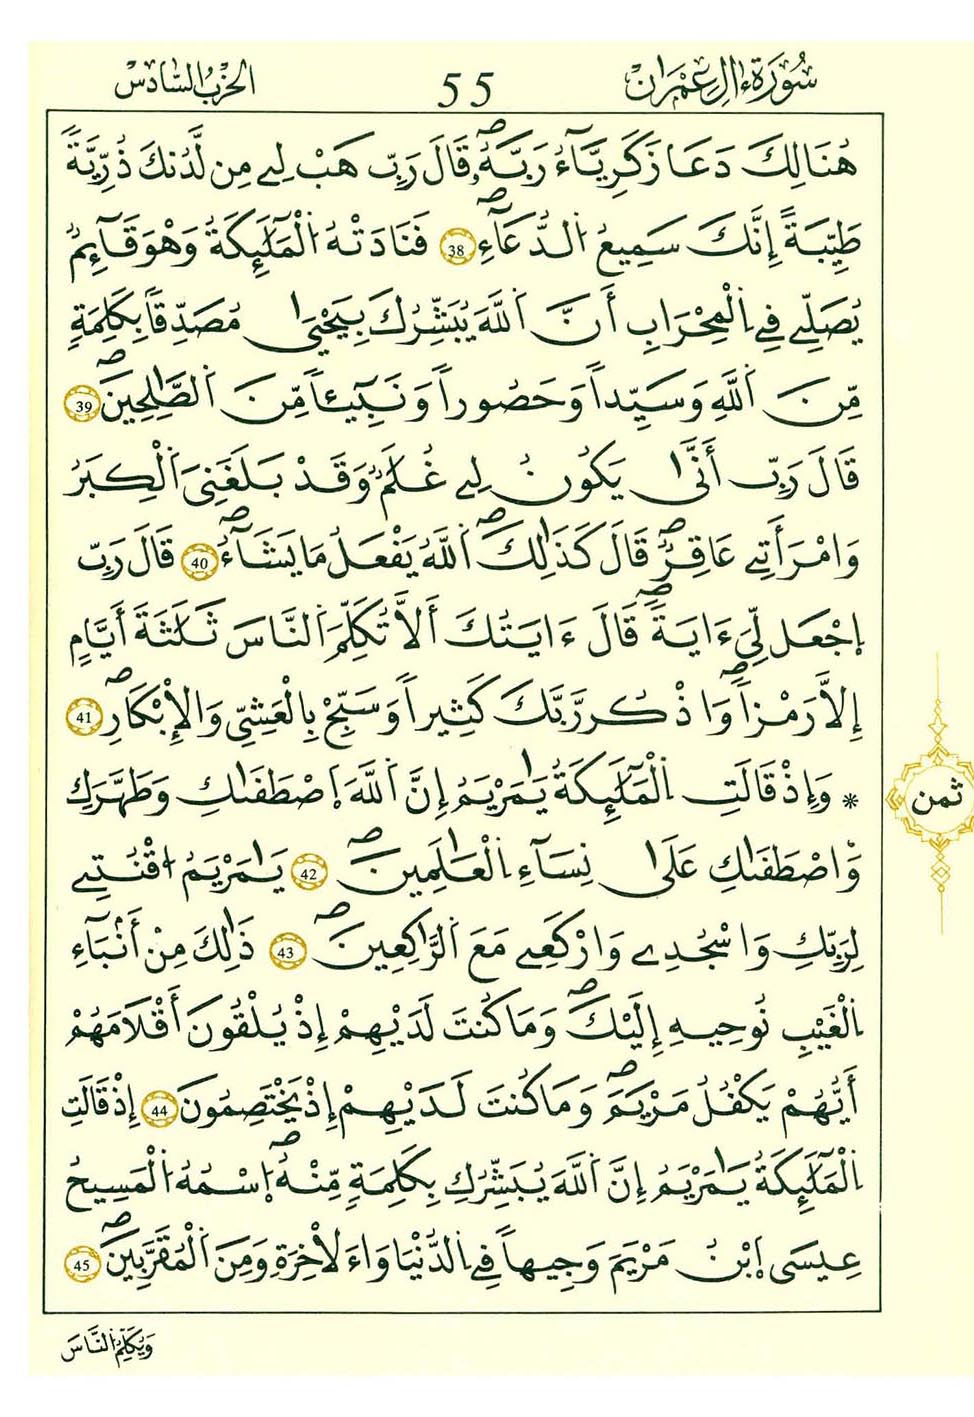 سُورَةُ ءَالِ عِمْرَانَ 55 الحِزْبُ السَّادِسْ
هُنَالِكَ دَعَا زَكَرِيَّآءُ رَبَّهُۥ قَالَ رَبِّ هَبْ لِے مِن لَّدُنكَ ذُرِّيَّةٗ
طَيِّبَةً إِنَّكَ سَمِيعُ اُ۬لدُّعَآءِ 38 فَنَادَتْهُ اُ۬لْمَلَٰٓئِكَةُ وَهْوَ قَآئِمٞ
يُصَلِّے فِے اِ۬لْمِحْرَابِ أَنَّ اَ۬للَّهَ يُبَشِّرُكَ بِيَحْيَىٰ مُصَدِّقاَۢ بِكَلِمَةٖ
مِّنَ اَ۬للَّهِ وَسَيِّداٗ وَحَصُوراٗ وَنَبِيٓـٔاٗ مِّنَ اَ۬لصَّٰلِحِينَ 39
قَالَ رَبِّ أَنَّىٰ يَكُونُ لِے غُلَٰمٞ وَقَدْ بَلَغَنِيَ اَ۬لْكِبَرُ
وَامْرَأَتِے عَاقِرٞ قَالَ كَذَٰلِكَ اَ۬للَّهُ يَفْعَلُ مَا يَشَآءُ 40 قَالَ رَبِّ
اِ۪جْعَل لِّيَ ءَايَةٗ قَالَ ءَايَتُكَ أَلَّا تُكَلِّمَ اَ۬لنَّاسَ ثَلَٰثَةَ أَيَّامٍ
إِلَّا رَمْزاٗ وَاذْكُر رَّبَّكَ كَثِيراٗ وَسَبِّحْ بِالْعَشِيِّ وَالِابْكٰ۪رِ 41
* وَإِذْ قَالَتِ اِ۬لْمَلَٰٓئِكَةُ يَٰمَرْيَمُ إِنَّ اَ۬للَّهَ اَ۪صْطَف۪يٰكِ وَطَهَّرَكِ
وَاصْطَف۪يٰكِ عَلَىٰ نِسَآءِ اِ۬لْعَٰلَمِينَ 42 يَٰمَرْيَمُ اُ۟قْنُتِے
لِرَبِّكِ وَاسْجُدِے وَارْكَعِے مَعَ اَ۬لرَّٰكِعِينَ 43 ذَٰلِكَ مِنَ اَنۢبَآءِ
اِ۬لْغَيْبِ نُوحِيهِ إِلَيْكَ وَمَا كُنتَ لَدَيْهِمُۥٓ إِذْ يُلْقُونَ أَقْلَٰمَهُمُۥٓ
أَيُّهُمْ يَكْفُلُ مَرْيَمَ وَمَا كُنتَ لَدَيْهِمُۥٓ إِذْ يَخْتَصِمُونَ 44 إِذْ قَالَتِ
اِ۬لْمَلَٰٓئِكَةُ يَٰمَرْيَمُ إِنَّ اَ۬للَّهَ يُبَشِّرُكِ بِكَلِمَةٖ مِّنْهُ اُ۪سْمُهُ اُ۬لْمَسِيحُ
عِيسَى اَ۪بْنُ مَرْيَمَ وَجِيهاٗ فِے اِ۬لدُّنْي۪ا وَالَاخِرَةِ وَمِنَ اَ۬لْمُقَرَّبِينَ 45
ثمن
وَيُكَلِّمُ النَّاسَ